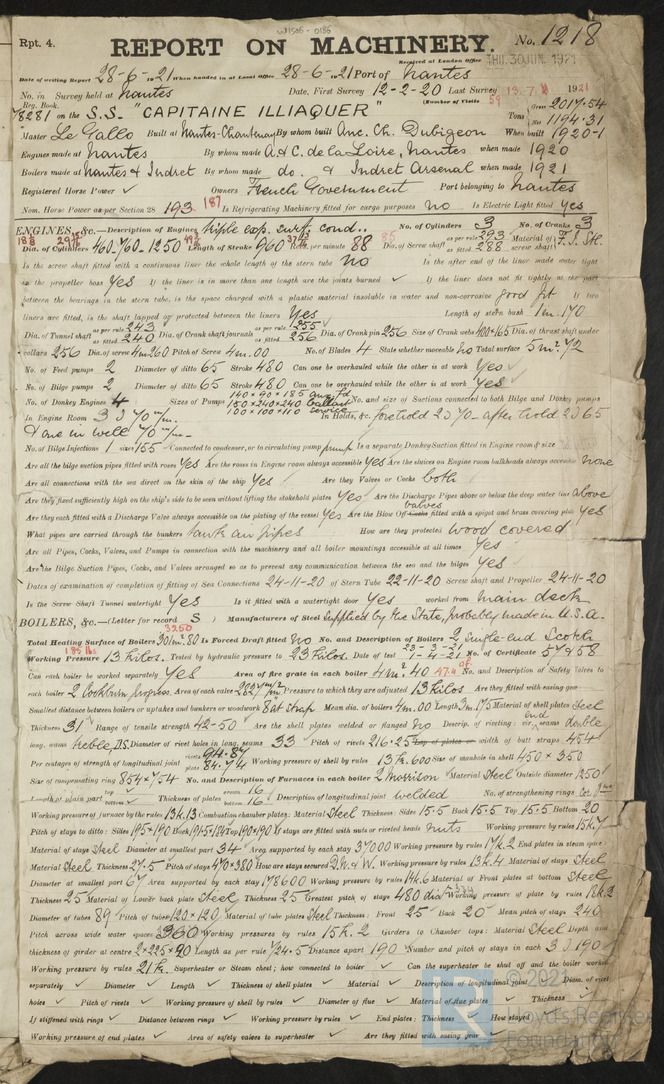 W1506-0186
Rpt. 4.
REPORT ON MACHINERY. No. 1218
Received at London Office THU. 30 JUN. 1921
Date of writing Report 28-6-1921 When handed in at Local Office 28-6-1921 Port of Nantes
No. in Survey held at Nantes Date, First Survey 12-2-20 Last Survey 1921
Reg. Book. (Number of Visits 59
78281 on the S.S. "CAPITAINE ILLIAQUER" Tons Gross 2017.54 Net 1194.31
Master Le Gallo Built at Nantes-Chantenay By whom built Anc. Ch. Dubigeon When built 1920-1
Engines made at Nantes By whom made A & C. de la Loire, Nantes when made 1920
Boilers made at Nantes & Indret By whom made do. & Indret Arsenal when made 1921
Registered Horse Power Owners French Government Port belonging to Nantes
Nom. Horse Power as per Section 28 193 187 Is Refrigerating Machinery fitted for cargo purposes No Is Electric Light fitted Yes
ENGINES, &c.—Description of Engines triple exp. surf. cond. No. of Cylinders 3 No. of Cranks 3
Dia. of Cylinders 460-760-1250 Length of Stroke 960 Revs. per minute 88 Dia. of Screw shaft as per rule 293 as fitted 288 Material of screw shaft
Is the screw shaft fitted with a continuous liner the whole length of the stern tube No Is the after end of the liner made water tight
in the propeller boss Yes If the liner is in more than one length are the joints burned If the liner does not fit tightly at the part
between the bearings in the stern tube, is the space charged with a plastic material insoluble in water and non-corrosive good fit If two
liners are fitted, is the shaft lapped or protected between the liners Yes Length of stern bush 1m.170
Dia. of Tunnel shaft as per rule 243 as fitted 240 Dia. of Crank shaft journals as per rule 255 as fitted 256 Dia. of Crank pin 256 Size of Crank webs 400x165 Dia. of thrust shaft under
collars 256 Dia. of screw 4m260 Pitch of Screw 4m.00 No. of Blades 4 State whether moveable No Total surface 5m²72
No. of Feed pumps 2 Diameter of ditto 65 Stroke 480 Can one be overhauled while the other is at work Yes
No. of Bilge pumps 2 Diameter of ditto 65 Stroke 480 Can one be overhauled while the other is at work Yes
No. of Donkey Engines 4 Sizes of Pumps 140 x 90 x 185 180 x 240 x 240 Ballast 100 x 100 x 110 service No. and size of Suctions connected to both Bilge and Donkey pumps
In Engine Room 3 70 m/m. In Holds, &c. forehold 2 70 - after hold 2 65
1 one in well 70 m/m
No. of Bilge Injections 1 sizes 155 Connected to condenser, or to circulating pump pump Is a separate Donkey Suction fitted in Engine room & size
Are all the bilge suction pipes fitted with roses Yes Are the roses in Engine room always accessible Yes Are the sluices on Engine room bulkheads always accessible none
Are all connections with the sea direct on the skin of the ship Yes Are they Valves or Cocks both
Are they fixed sufficiently high on the ship's side to be seen without lifting the stokehold plates Yes Are the Discharge Pipes above or below the deep water line above
Are they each fitted with a Discharge Valve always accessible on the plating of the vessel Yes Are the Blow Off Cocks valves fitted with a spigot and brass covering plate Yes
What pipes are carried through the bunkers tank air pipes How are they protected wood covered
Are all Pipes, Cocks, Valves, and Pumps in connection with the machinery and all boiler mountings accessible at all times Yes
Are the Bilge Suction Pipes, Cocks, and Valves arranged so as to prevent any communication between the sea and the bilges Yes
Dates of examination of completion of fitting of Sea Connections 24-11-20 of Stern Tube 22-11-20 Screw shaft and Propeller 24-11-20
Is the Screw Shaft Tunnel watertight Yes Is it fitted with a watertight door Yes worked from main deck
BOILERS, &c.—(Letter for record S) Manufacturers of Steel Supplied by the State, probably made in U.S.A.
Total Heating Surface of Boilers 301m².80 3250 Is Forced Draft fitted No No. and Description of Boilers 2 Single-end Scotch
Working Pressure 13 kilos. 185 lbs Tested by hydraulic pressure to 23 kilos. Date of test 23-3-21 1-4-21 No. of Certificate 57 & 58
Can each boiler be worked separately Yes Area of fire grate in each boiler 4m².40 No. and Description of Safety Valves to
each boiler 2 Cockburn Area of each valve Pressure to which they are adjusted 13 kilos Are they fitted with easing gear
Smallest distance between boilers or uptakes and bunkers or woodwork Mean dia. of boilers 4m.00 Length 3m.175 Material of shell plates Steel
Thickness 31 Range of tensile strength 42-50 Are the shell plates welded or flanged No Descrip. of riveting: cir. seams end double
long. seams treble, DS Diameter of rivet holes in long. seams 33 Pitch of rivets 216.25 Lap of plates or width of butt straps 454
Per centages of strength of longitudinal joint rivets 94.87 plate 84.74 Working pressure of shell by rules 13k.600 Size of manhole in shell 450 x 350
Size of compensating ring 854 x 754 No. and Description of Furnaces in each boiler 2 Morrison Material Steel Outside diameter 1250
Length of plain part top bottom Thickness of plates crown 16 bottom 16 Description of longitudinal joint welded No. of strengthening rings
Working pressure of furnace by the rules 13k.13 Combustion chamber plates: Material Steel Thickness: Sides 15.5 Back 15.5 Top 15.5 Bottom 20
Pitch of stays to ditto: Sides 195x190 Back Top 190x190 If stays are fitted with nuts or riveted heads nuts Working pressure by rules 15k.7
Material of stays Steel Diameter at smallest part 34 Area supported by each stay 37000 Working pressure by rules 17k.2 End plates in steam space:
Material Steel Thickness 27.5 Pitch of stays 470x380 How are stays secured D.N. & W. Working pressure by rules 13k.4 Material of stays Steel
Diameter at smallest part 67 Area supported by each stay 178600 Working pressure by rules 14k.6 Material of Front plates at bottom Steel
Thickness 25 Material of Lower back plate Steel Thickness 25 Greatest pitch of stays 480 dia Working pressure of plate by rules 18k.2
Diameter of tubes 89 Pitch of tubes 120x120 Material of tube plates Steel Thickness: Front 25 Back 20 Mean pitch of stays 240
Pitch across wide water spaces 360 Working pressures by rules 15k.2 Girders to Chamber tops: Material Steel Depth and
thickness of girder at centre 2x225x20 Length as per rule 724.5 Distance apart 190 Number and pitch of stays in each 3 190
Working pressure by rules 21k. Superheater or Steam chest; how connected to boiler Can the superheater be shut off and the boiler worked
separately Diameter Length Thickness of shell plates Material Description of longitudinal joint Diam. of rivet
holes Pitch of rivets Working pressure of shell by rules Diameter of flue Material of flue plates Thickness
If stiffened with rings Distance between rings Working pressure by rules End plates: Thickness How stayed
Working pressure of end plates Area of safety valves to superheater Are they fitted with easing gear
© 2021
Lloyd's Register
Foundation